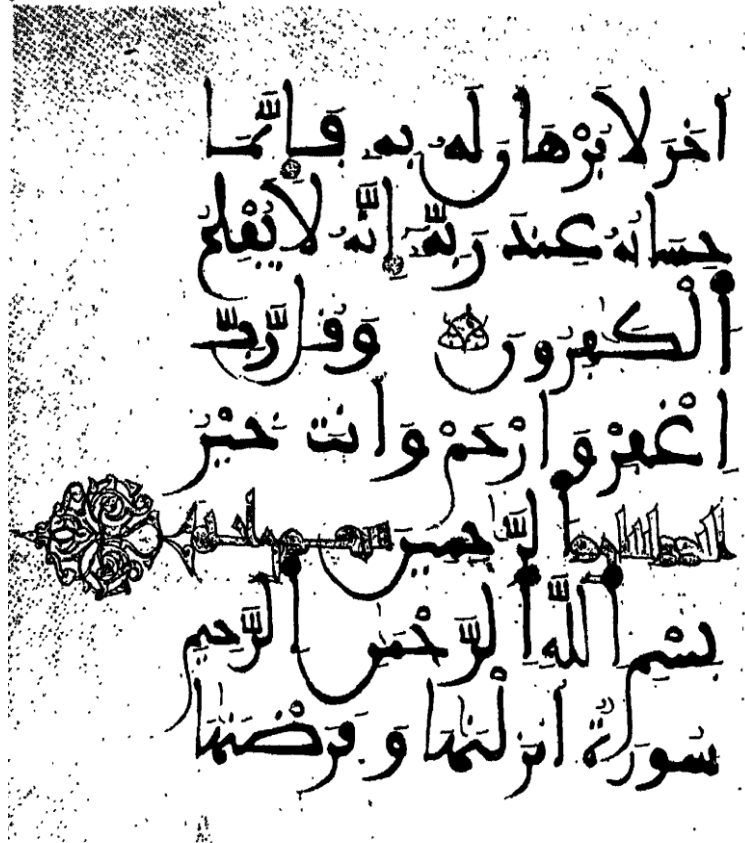 ءَاخَرَ لَا بُرْهَٰنَ لَهُۥ بِهِۦ فَإِنَّمَا
حِسَابُهُۥ عِندَ رَبِّهِۦٓ إِنَّهُۥ لَا يُفْلِحُ
ٱلْكَٰفِرُونَ وَقُل رَّبِّ
ٱغْفِرْ وَٱرْحَمْ وَأَنتَ خَيْرُ
ٱلرَّٰحِمِينَ
بِسْمِ ٱللَّهِ ٱلرَّحْمَٰنِ ٱلرَّحِيمِ
سُورَةٌ أَنزَلْنَٰهَا وَفَرَضْنَٰهَا